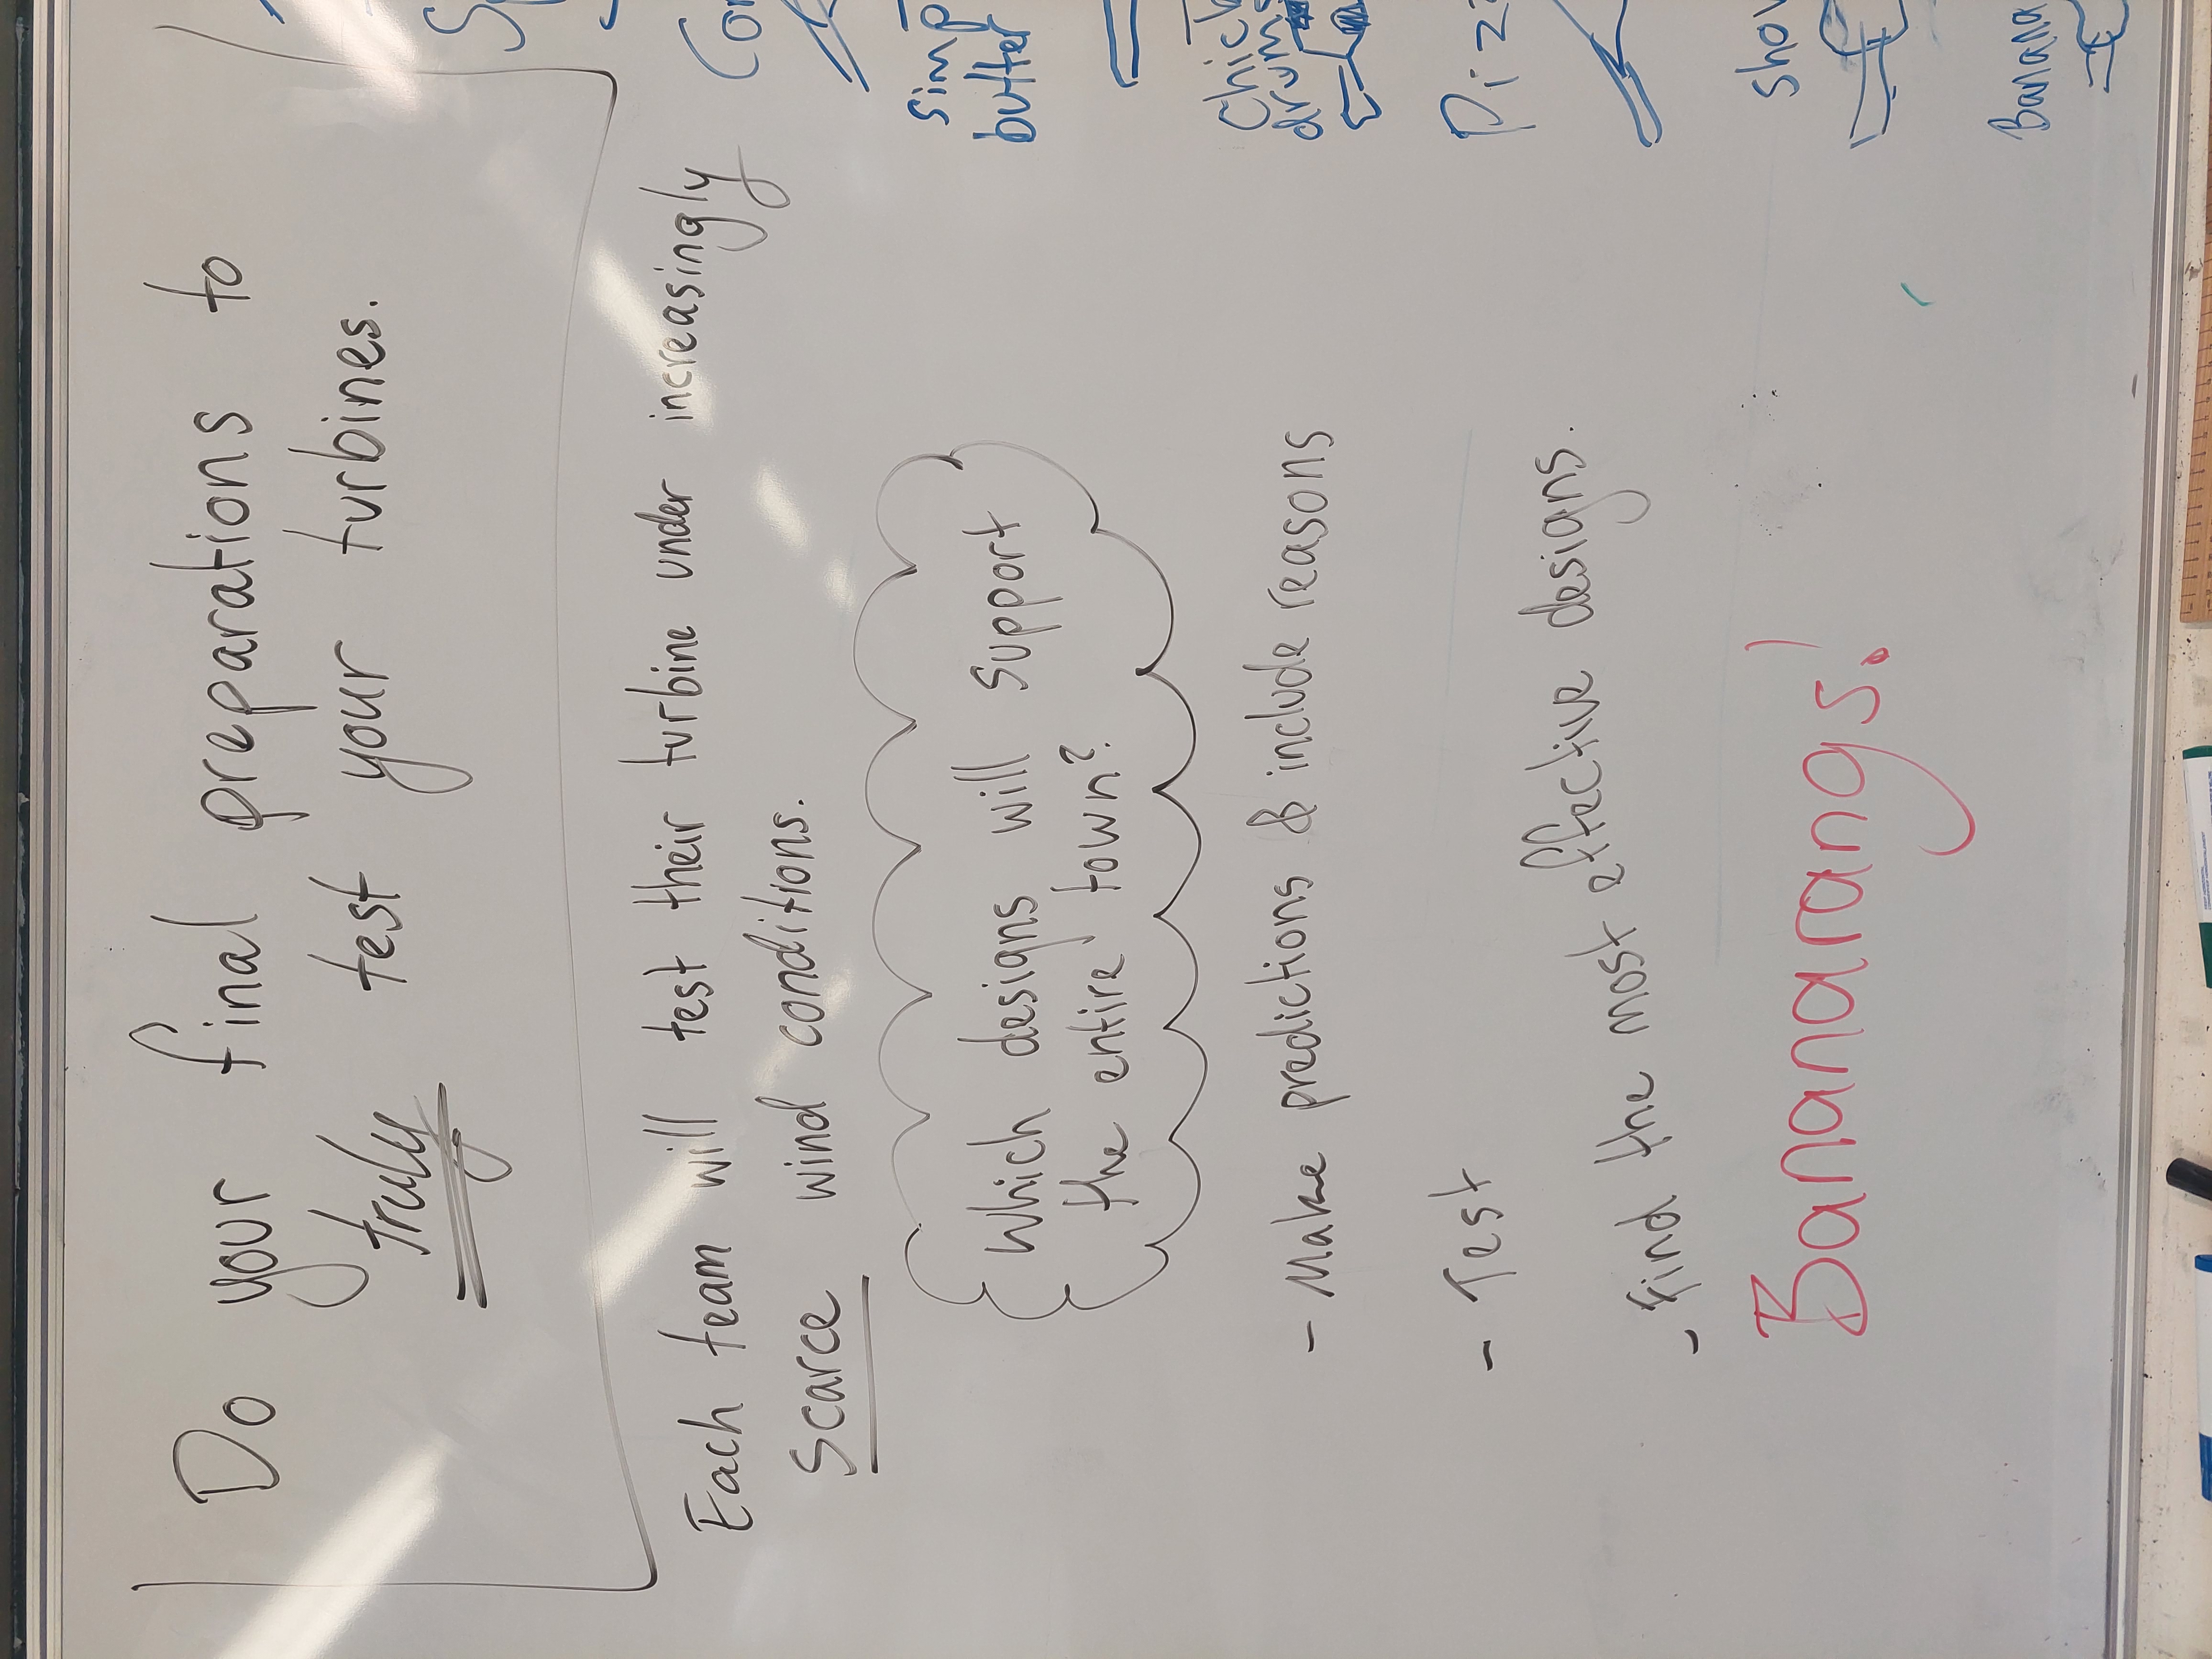 Do your final preparations to
truly test your turbines.
Each team will test their turbine under increasingly
scarce wind conditions.
Which designs will support
the entire town?
- Make predictions & include reasons
- Test
- Find the most effective designs.
Bananarangs!
simp
butter
Chick
drums
Pizz
show
Banana